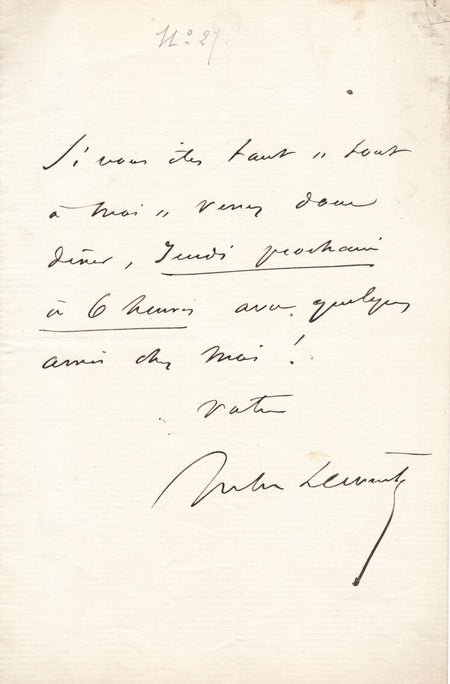 No 27.
Si vous êtes tant „ tout
à moi „ venez donc
dîner, Jeudi prochain
à 6 heures avec quelques
amis chez moi !
Votre
Jules